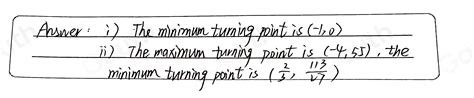 Answer: i) The minimum turning point is (-1,0)
ii) The maximum turning point is (-4,55), the
minimum turning point is (2/3, 113/27)